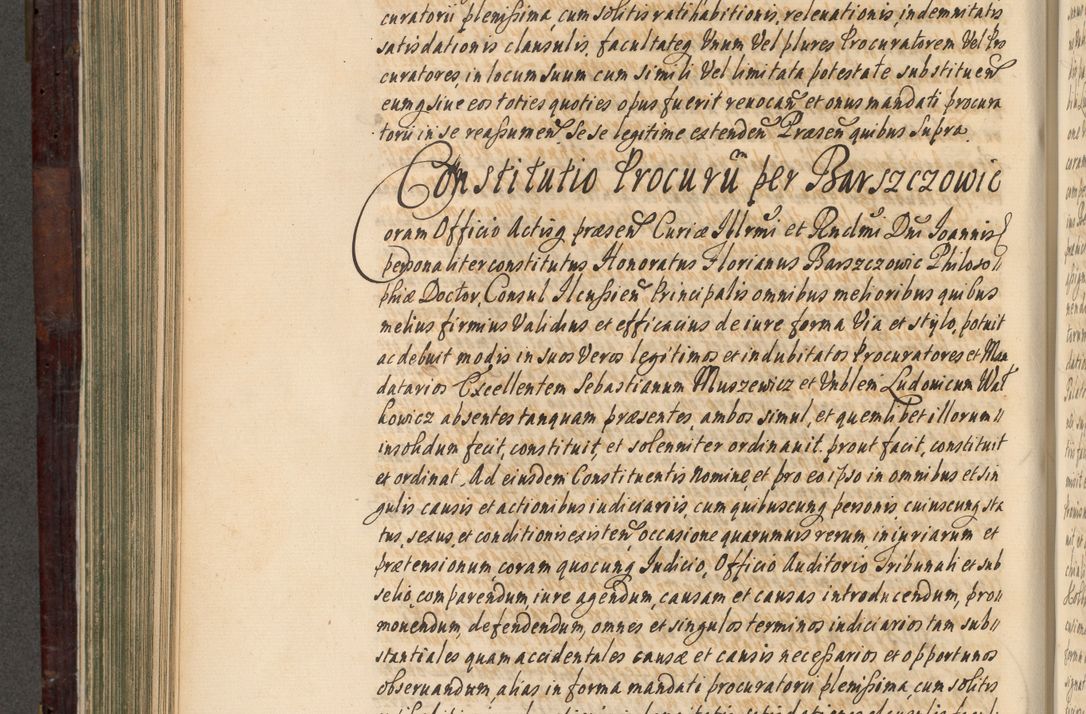 curatorii plenissima, cum solitis ratihabitionis, releuationis, indemnitatis
satisdationis clausulis, facultateq Vnum Vel plures Procuratorem Vel Pro
curatores, in locum suum cum simili Vel limitata potestate substituen
eumq siue eos toties quoties opus fuerit reuocan et onus mandati procura
torii in se reassumen. Se se legitime extenden Præsen quibus supra.
Constitutio Procurum per Barszczowic
oram Officio Actisq præsen Curiæ Illrmi et Rndmi Dni Ioannis
personaliter constitutus Honoratus Florianus Barszczowic Philoso//
phiæ Doctor, Consul Ilcussien Principalis omnibus melioribus quibus
melius firmius Validius et efficacius de iure forma Via et stylo, potuit
ac debuit modis in suos Veros legitimos et indubitatos Procuratores et Man
datarios Excellentem Sebastianum Muszewicz et Vnblem Ludouicum Wal
kowicz absentes tanquam præsentes, ambos simul, et quemlibet illorum//
insolidum fecit, constituit, et solenniter ordinauit. prout facit, constituit
et ordinat. Ad eiusdem Constituentis nomine, et pro eo ipso in omnibus et sin
gulis causis et actionibus iudiciariis cum quibuscunq personis cuiuscunq sta
tus, sexus, et conditionis existen, occasione quarumuis rerum iniuriarum et
prætensionum coram quocunq Iudicio, Officio Auditorio Tribunali et sub
selio, comparendum, iure agendum, causam et causas introducendum, pro//
mouendum, defendendum, omnes et singulos terminos iudiciarios tam sub//
stantiales quam accidentales causæ et causis necessarios et opportunos
obseruandum, alias in forma mandati procuratorii plenissima, cum solitis